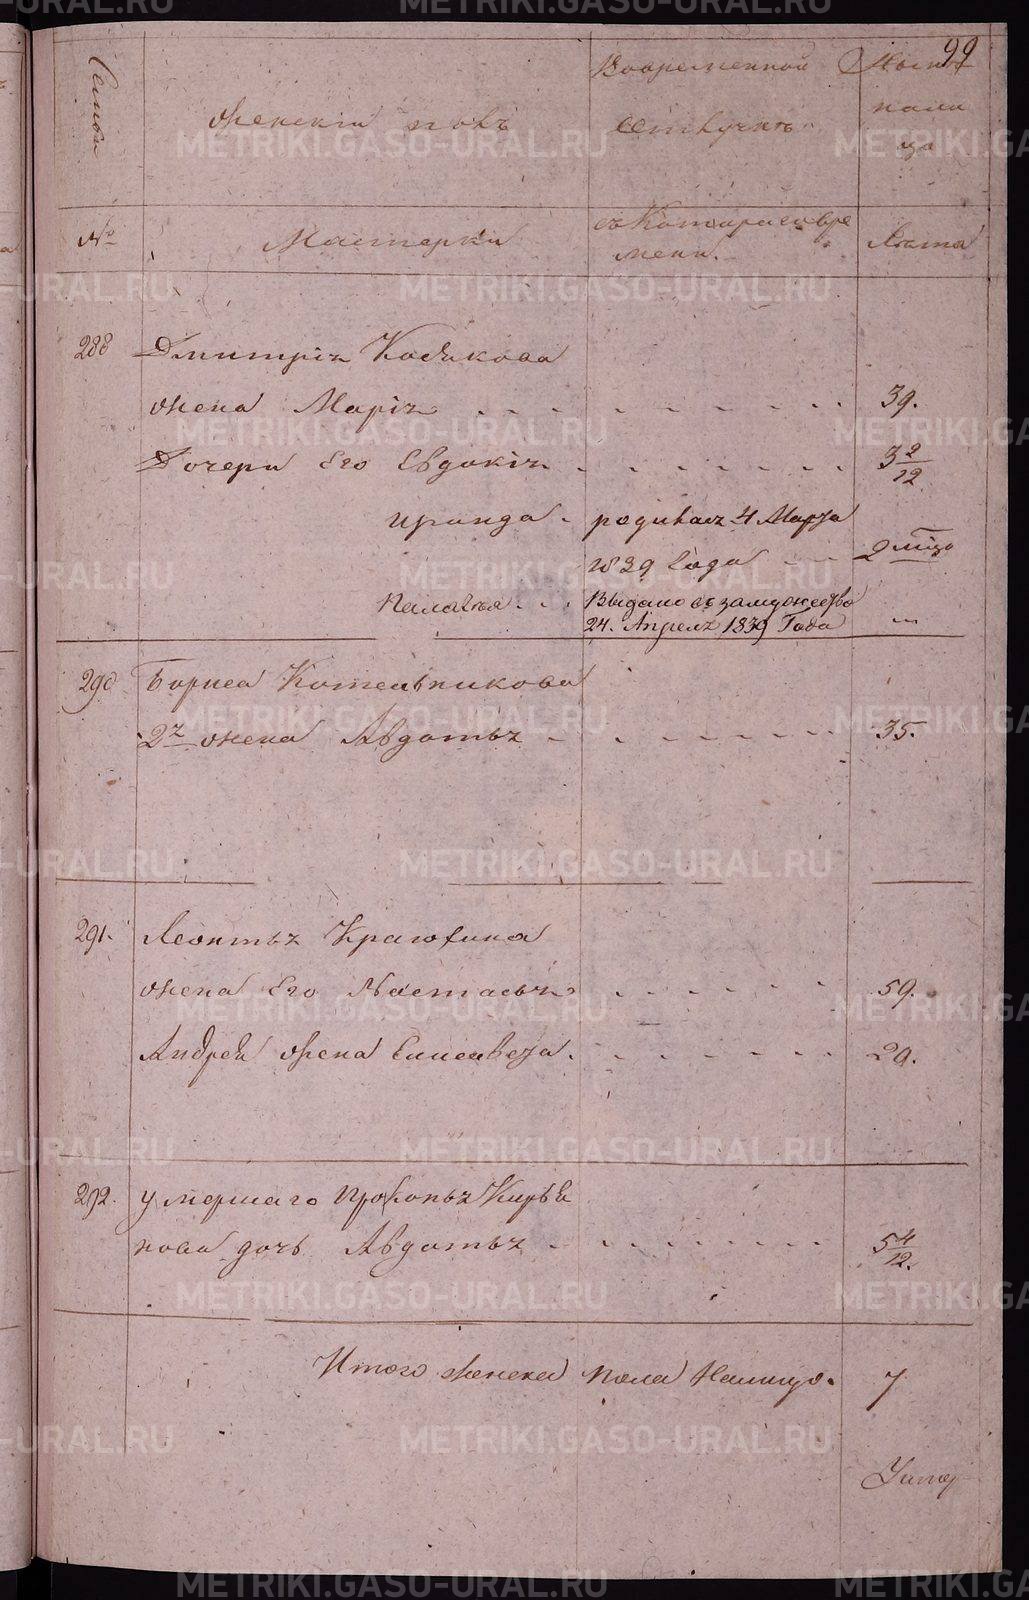 99
Семьи
Женскій полъ
Вовременной
отлучкѣ
Нынѣ
нали
цо
№
Мастерки
съ Котораго вре
мени.
Лета
288 Дмитрія Кобякова
жена Марія 39.
Дочери Его Евдокія 3 2/12
Ираида родилась 4 Марта
1839 Года 2 мѣсо
Пелагея Выдано въ замужество
24. Апреля 1839 Года
290 Бориса Котельникова
2я жена Авдотья 35.
291. Леонтья
жена Его Настасья 59.
Андрея жена Елисавета. 29.
292. умершаго Прокопья
нова дочь Авдотья 5 4/12.
Итого женска пола Налицо. 7
METRIKI.GASO-URAL.RU